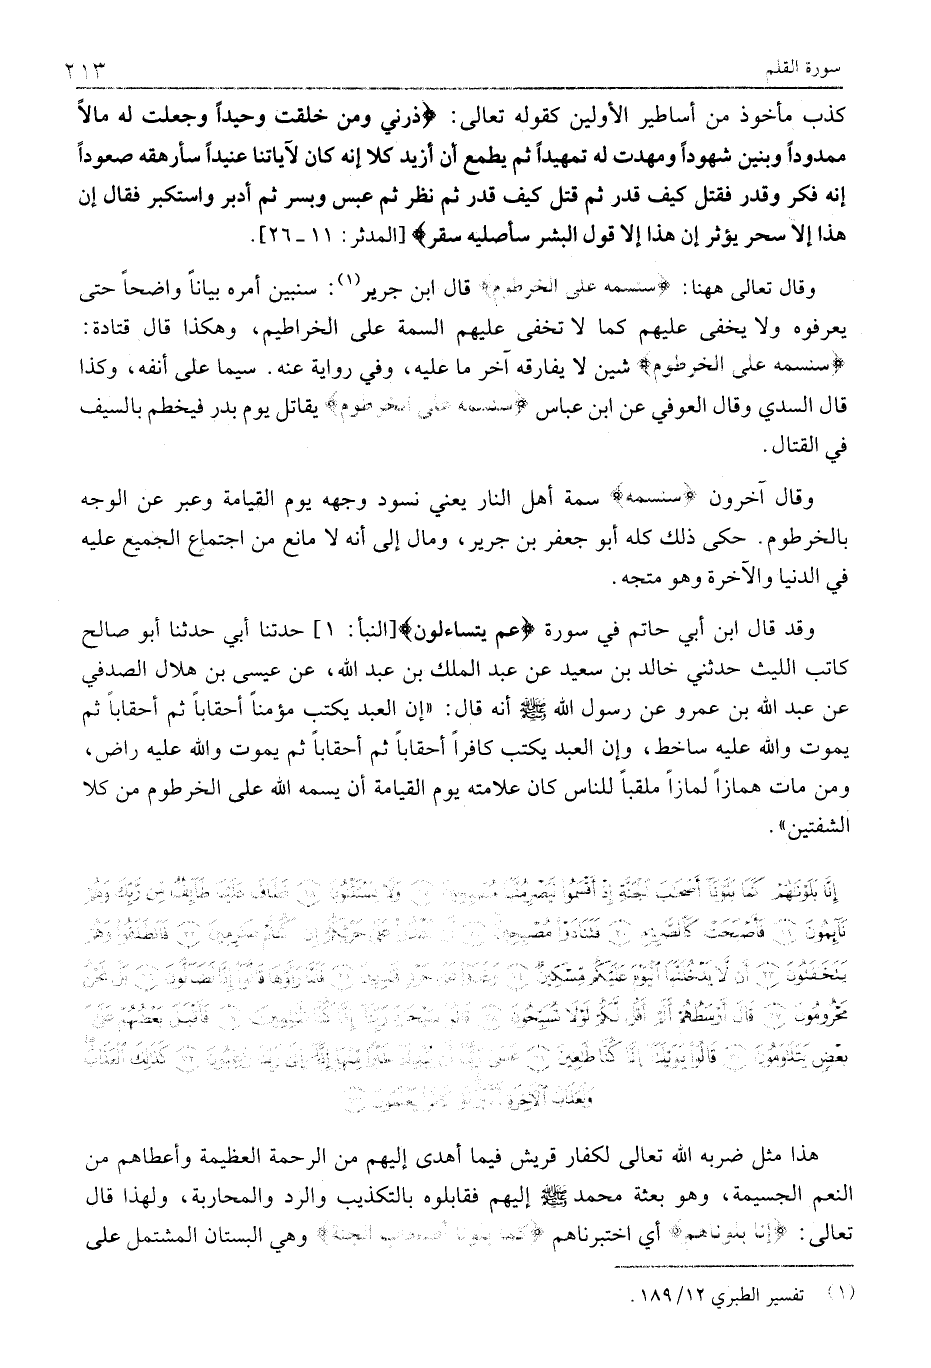 سورة القلم ٢١٣
كذب مأخوذ من أساطير الأولين كقوله تعالى: ﴿ذرني ومن خلقت وحيداً وجعلت له مالاً
ممدوداً وبنين شهوداً ومهدت له تمهيداً ثم يطمع أن أزيد كلا إنه كان لآياتنا عنيداً سأرهقه صعوداً
إنه فكر وقدر فقتل كيف قدر ثم قتل كيف قدر ثم نظر ثم عبس وبسر ثم أدبر واستكبر فقال إن
هذا إلا سحر يؤثر إن هذا إلا قول البشر سأصليه سقر﴾ [المدثر: ١١ ـ ٢٦].
وقال تعالى ههنا: ﴿سنسمه على الخرطوم﴾ قال ابن جرير(١): سنبين أمره بياناً واضحاً حتى
يعرفوه ولا يخفى عليهم كما لا تخفى عليهم السمة على الخراطيم، وهكذا قال قتادة:
﴿سنسمه على الخرطوم﴾ شين لا يفارقه آخر ما عليه، وفي رواية عنه. سيما على أنفه، وكذا
قال السدي وقال العوفي عن ابن عباس ﴿سنسمه على الخرطوم﴾ يقاتل يوم بدر فيخطم بالسيف
في القتال.
وقال آخرون ﴿سنسمه﴾ سمة أهل النار يعني نسود وجهه يوم القيامة وعبر عن الوجه
بالخرطوم. حكى ذلك كله أبو جعفر بن جرير، ومال إلى أنه لا مانع من اجتماع الجميع عليه
في الدنيا والآخرة وهو متجه.
وقد قال ابن أبي حاتم في سورة ﴿عم يتساءلون﴾[النبأ: ١] حدثنا أبي حدثنا أبو صالح
كاتب الليث حدثني خالد بن سعيد عن عبد الملك بن عبد الله، عن عيسى بن هلال الصدفي
عن عبد الله بن عمرو عن رسول الله ﷺ أنه قال: «إن العبد يكتب مؤمناً أحقاباً ثم أحقاباً ثم
يموت والله عليه ساخط، وإن العبد يكتب كافراً أحقاباً ثم أحقاباً ثم يموت والله عليه راض،
ومن مات همازاً لمازاً ملقباً للناس كان علامته يوم القيامة أن يسمه الله على الخرطوم من كلا
الشفتين».
إِنَّا بَلَوْنَاهُمْ كَمَا بَلَوْنَا أَصْحَابَ الْجَنَّةِ إِذْ أَقْسَمُوا لَيَصْرِمُنَّهَا مُصْبِحِينَ وَلَا يَسْتَثْنُونَ فَطَافَ عَلَيْهَا طَائِفٌ مِن رَّبِّكَ وَهُمْ
نَائِمُونَ فَأَصْبَحَتْ كَالصَّرِيمِ فَتَنَادَوْا مُصْبِحِينَ فَانطَلَقُوا وَهُمْ
يَتَخَافَتُونَ أَن لَّا يَدْخُلَنَّهَا الْيَوْمَ عَلَيْكُم مِّسْكِينٌ فَلَمَّا رَأَوْهَا قَالُوا إِنَّا لَضَالُّونَ بَلْ نَحْنُ
مَحْرُومُونَ قَالَ أَوْسَطُهُمْ أَلَمْ أَقُل لَّكُمْ لَوْلَا تُسَبِّحُونَ فَأَقْبَلَ بَعْضُهُمْ عَلَى
بَعْضٍ يَتَلَاوَمُونَ قَالُوا يَا وَيْلَنَا إِنَّا كُنَّا طَاغِينَ كَذَلِكَ الْعَذَابُ
وَلَعَذَابُ الْآخِرَةِ
هذا مثل ضربه الله تعالى لكفار قريش فيما أهدى إليهم من الرحمة العظيمة وأعطاهم من
النعم الجسيمة، وهو بعثة محمد ﷺ إليهم فقابلوه بالتكذيب والرد والمحاربة، ولهذا قال
تعالى: ﴿إنا بلوناهم﴾ أي اختبرناهم ﴿كما بلونا أصحاب الجنة﴾ وهي البستان المشتمل على
(١) تفسير الطبري ١٢/ ١٨٩.